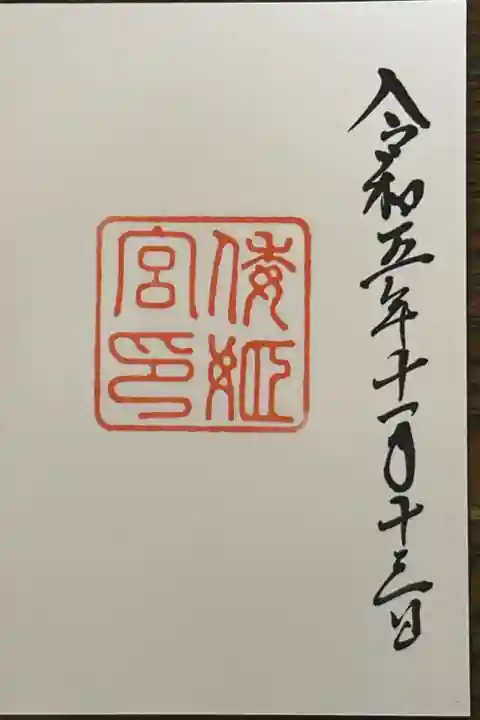 令和五年十一月十三日
倭姫
宮印